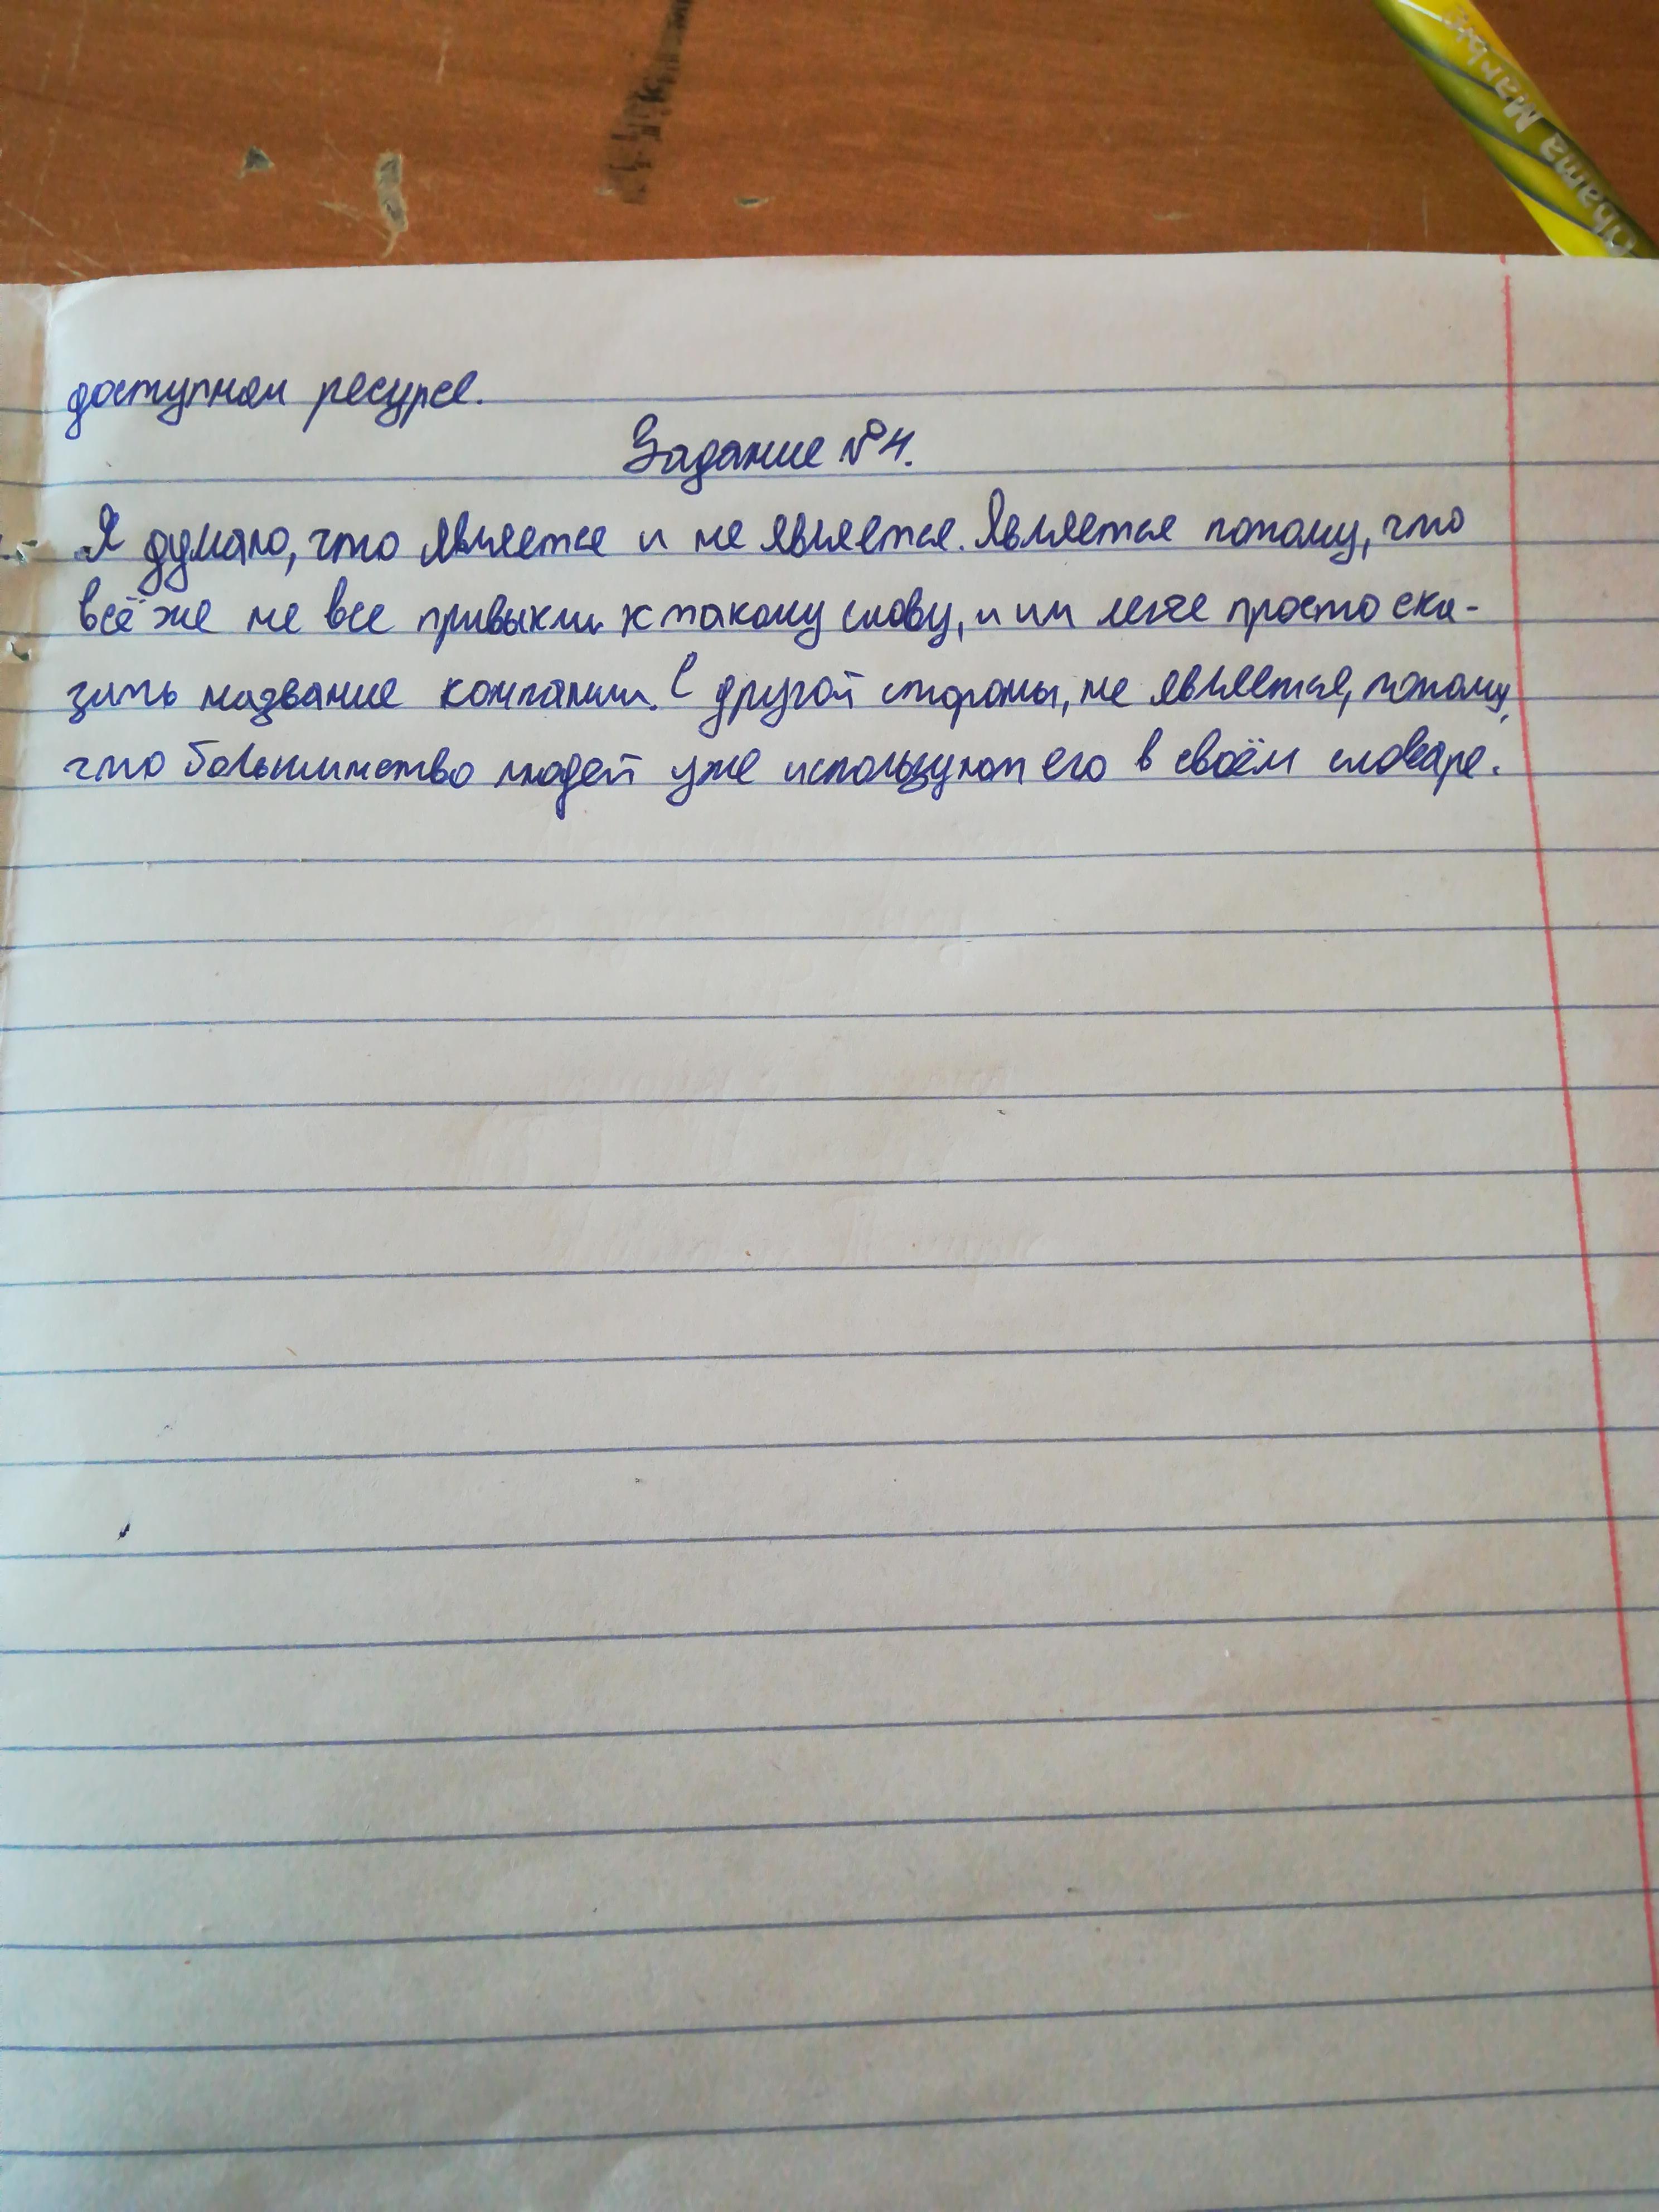 Ohama Marble
доступном ресурсе.
Задание №4.
Я думаю, что является и не является. Является потому, что
всё же не все привыкли к такому слову, и им легче просто ска-
зать название компании. С другой стороны, не является, потому,
что большинство людей уже используют его в своём словаре.